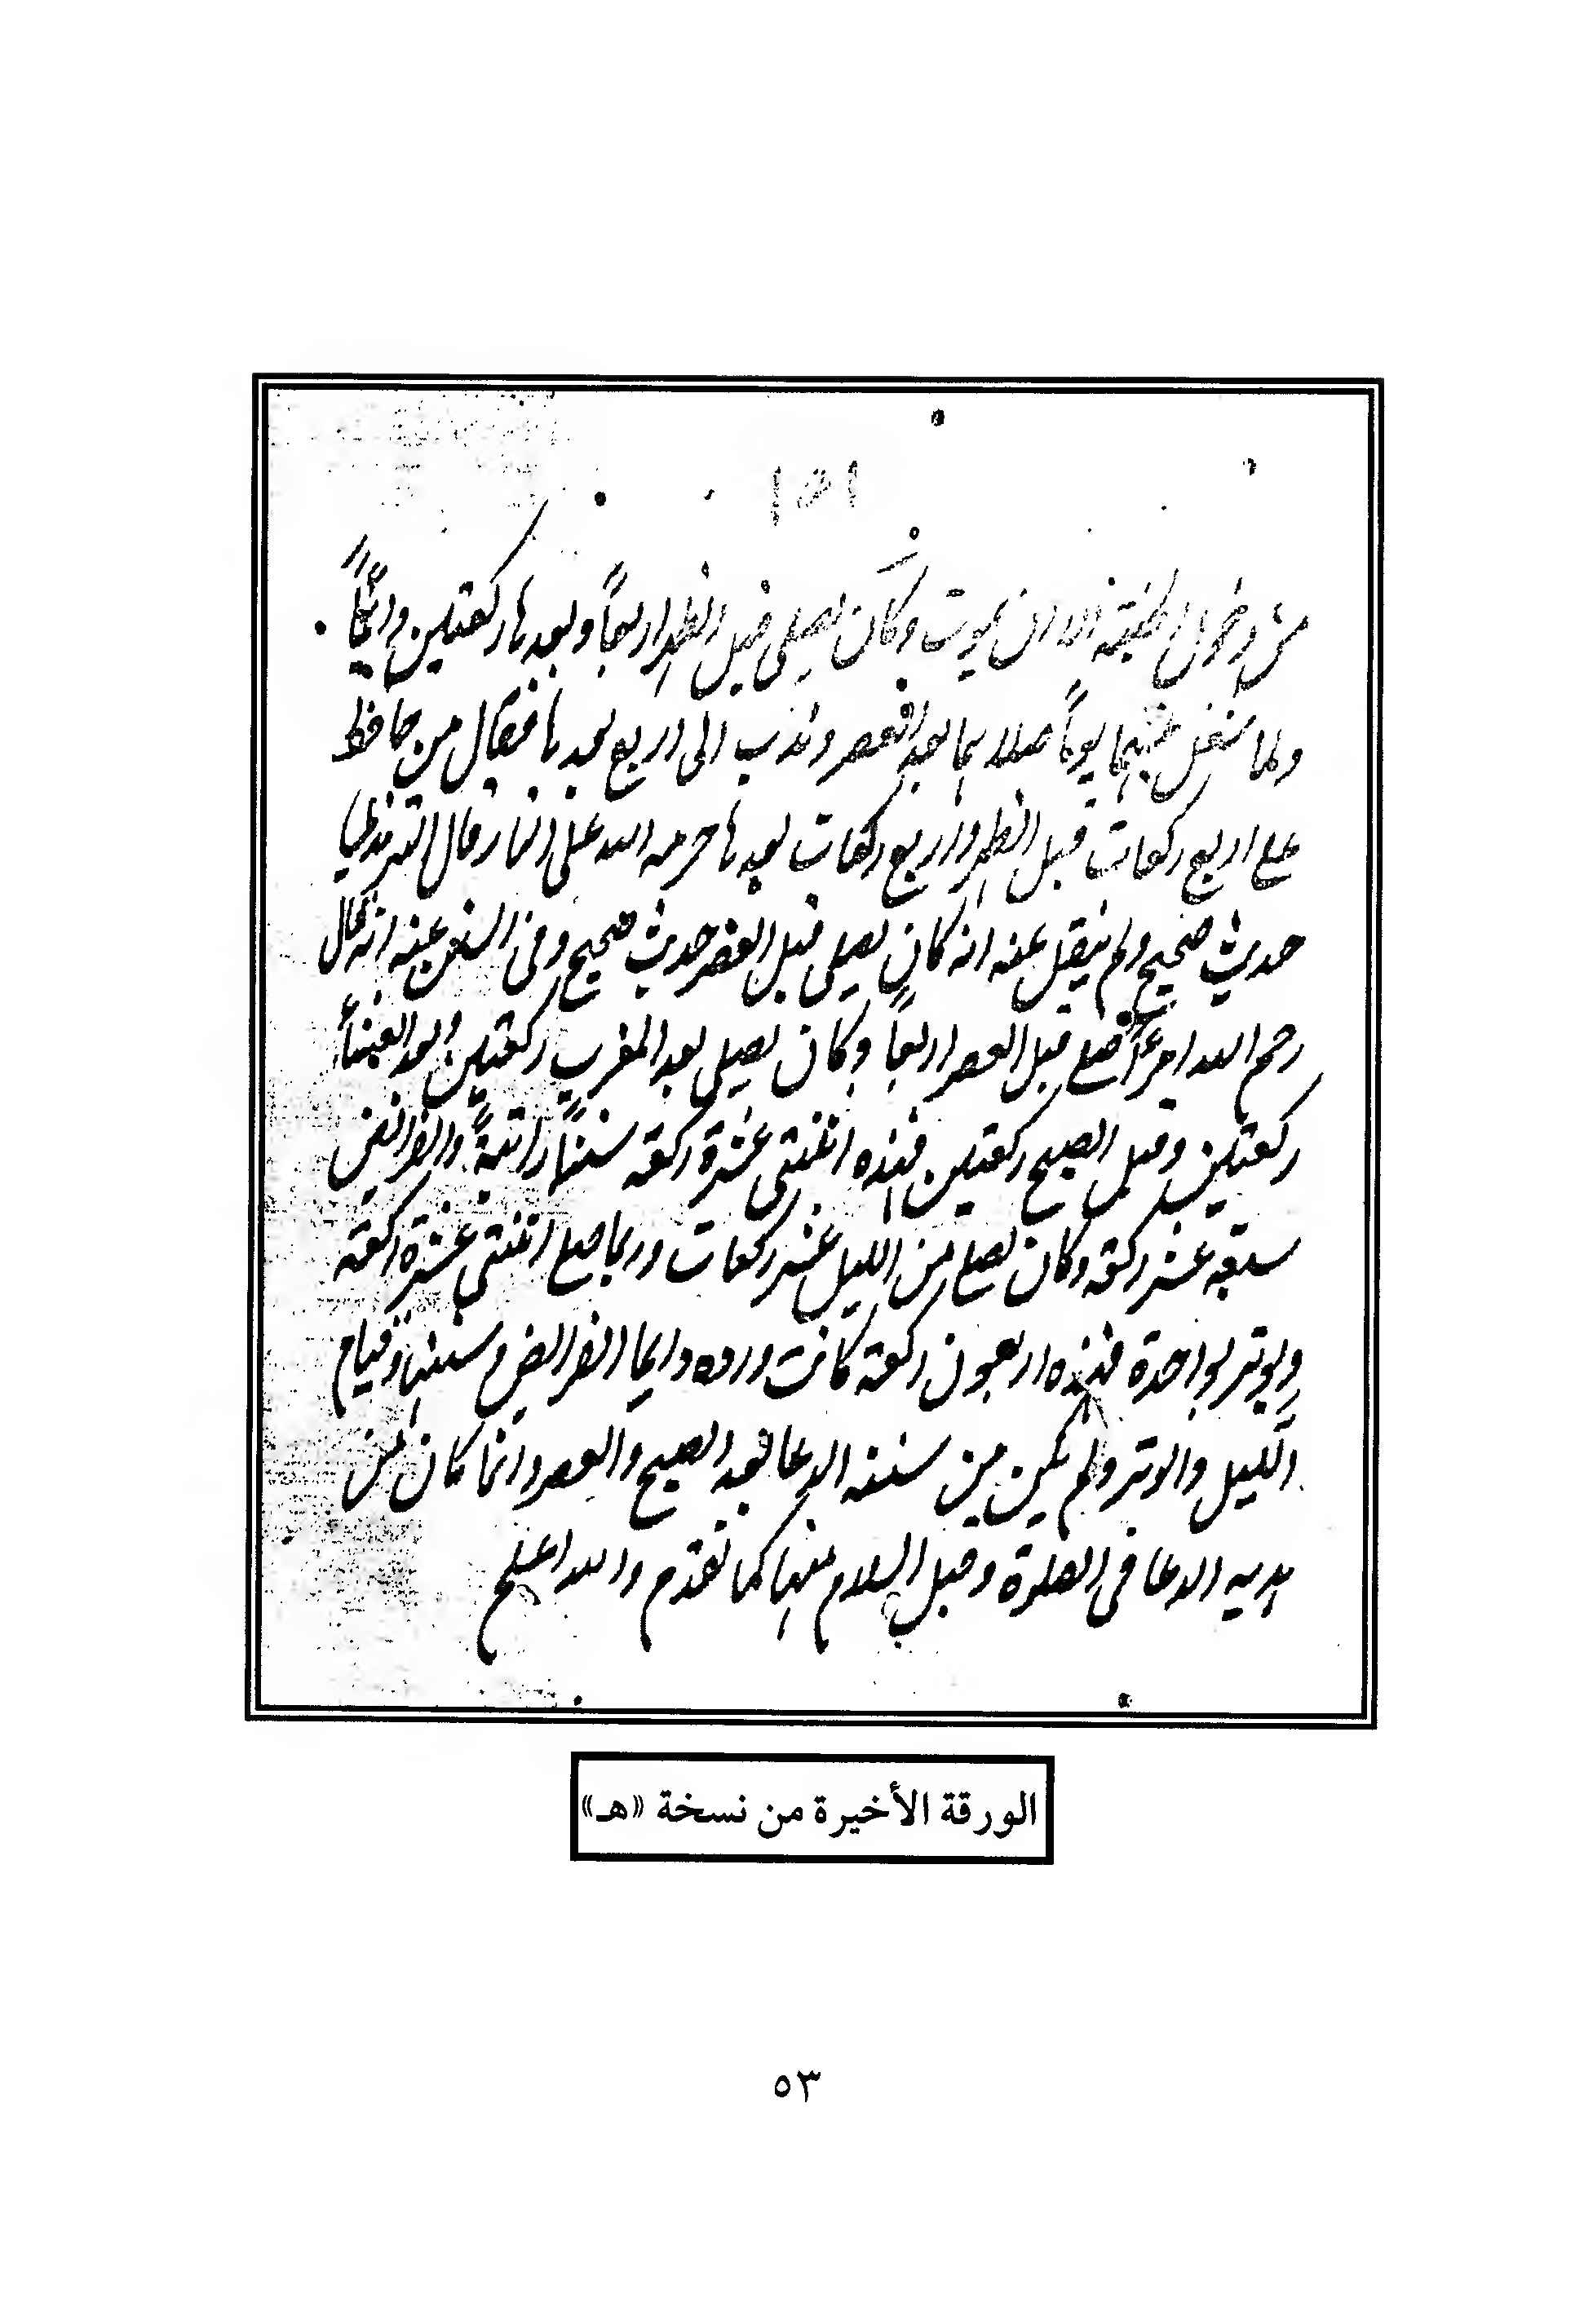 ١٥١
من دخول الجنة الا ان يموت وكان يصلي قبل الظهر اربعاً وبعدها ركعتين دائماً
ولما شغل عنهما يوماً صلاهما بعد العصر وندب الى اربع بعدها فقال من حافظ
على اربع ركعات قبل الظهر واربع ركعات بعدها حرمه الله على النار قال الترمذي
حديث صحيح ولم ينقل عنه انه كان يصلي قبل العصر حديث صحيح وفي السنن عنه انه قال
رحم الله امرءاً صلى قبل العصر اربعاً وكان يصلي بعد المغرب ركعتين وبعد العشاء
ركعتين وقبل الصبح ركعتين فهذه اثنتي عشرة ركعة سنناً راتبةً والفرائض
سبعة عشر ركعة وكان يصلي من الليل عشر ركعات وربما صلى اثنتي عشرة ركعة
ويوتر بواحدة فهذه اربعون ركعة كانت ورده دايما الفرائض وسننها وقيام
الليل والوتر ولم يكن من سننه الدعا بعد الصبح والعصر وانما كان من
هديه الدعا في الصلوة وقبل السلام منها كما تقدم والله اعلم
الورقة الأخيرة من نسخة «هـ»
٥٣